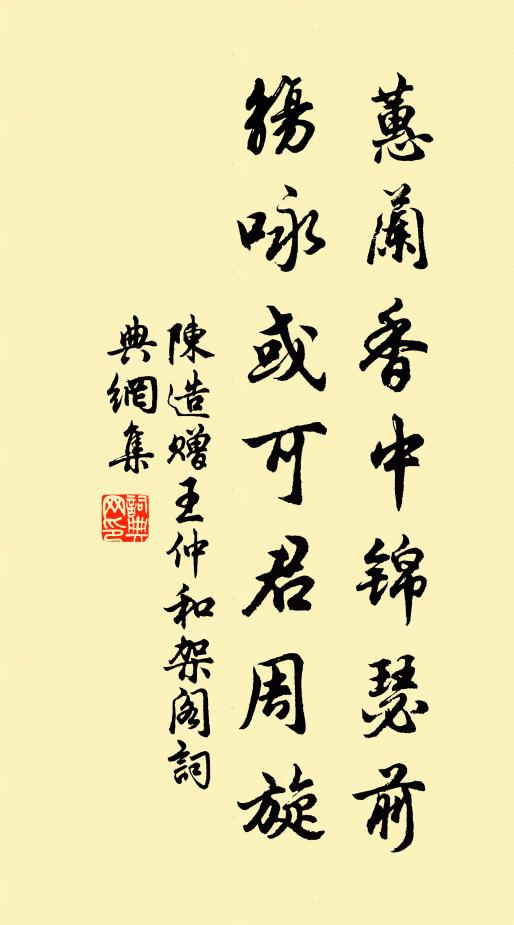 蕙蘭香中锦瑟前
觴咏或可君周旋
陳造赠王仲和架阁詞
典網集
詞典網印